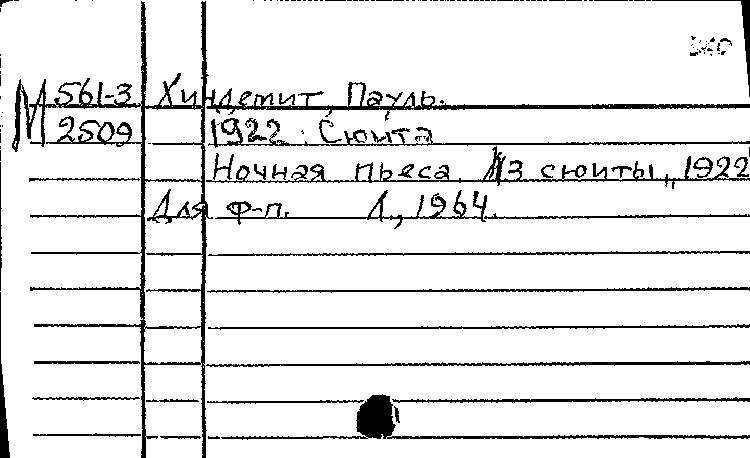 М 561-3 Хиндемит, Пауль.
2509 1922. Сюита
Ночная пьеса. Из сюиты „1922
Для ф-п. Л., 1964.